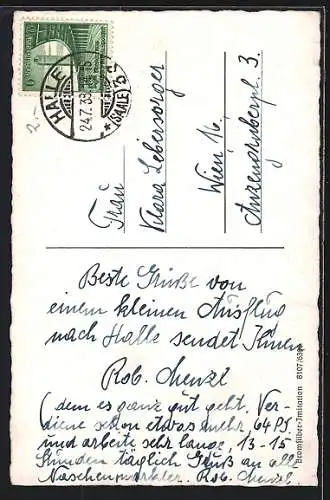 HALLE
24.7.39
(SAALE)
2.-
Frau
Klara Lebersorger
Wien 16.
Anzengruberpl. 3.
Beste Grüße von
einem kleinen Ausflug
nach Halle sendet Ihnen
Rob. Menzl
(dem es ganz gut geht. Ver-
diene schon etwas mehr, 64 Pf.
und arbeite sehr lange, 13-15
Stunden täglich Gruß an alle
Naschenmarkter. Rob. Menzl.
Bromsilber-Imitation 8107/639